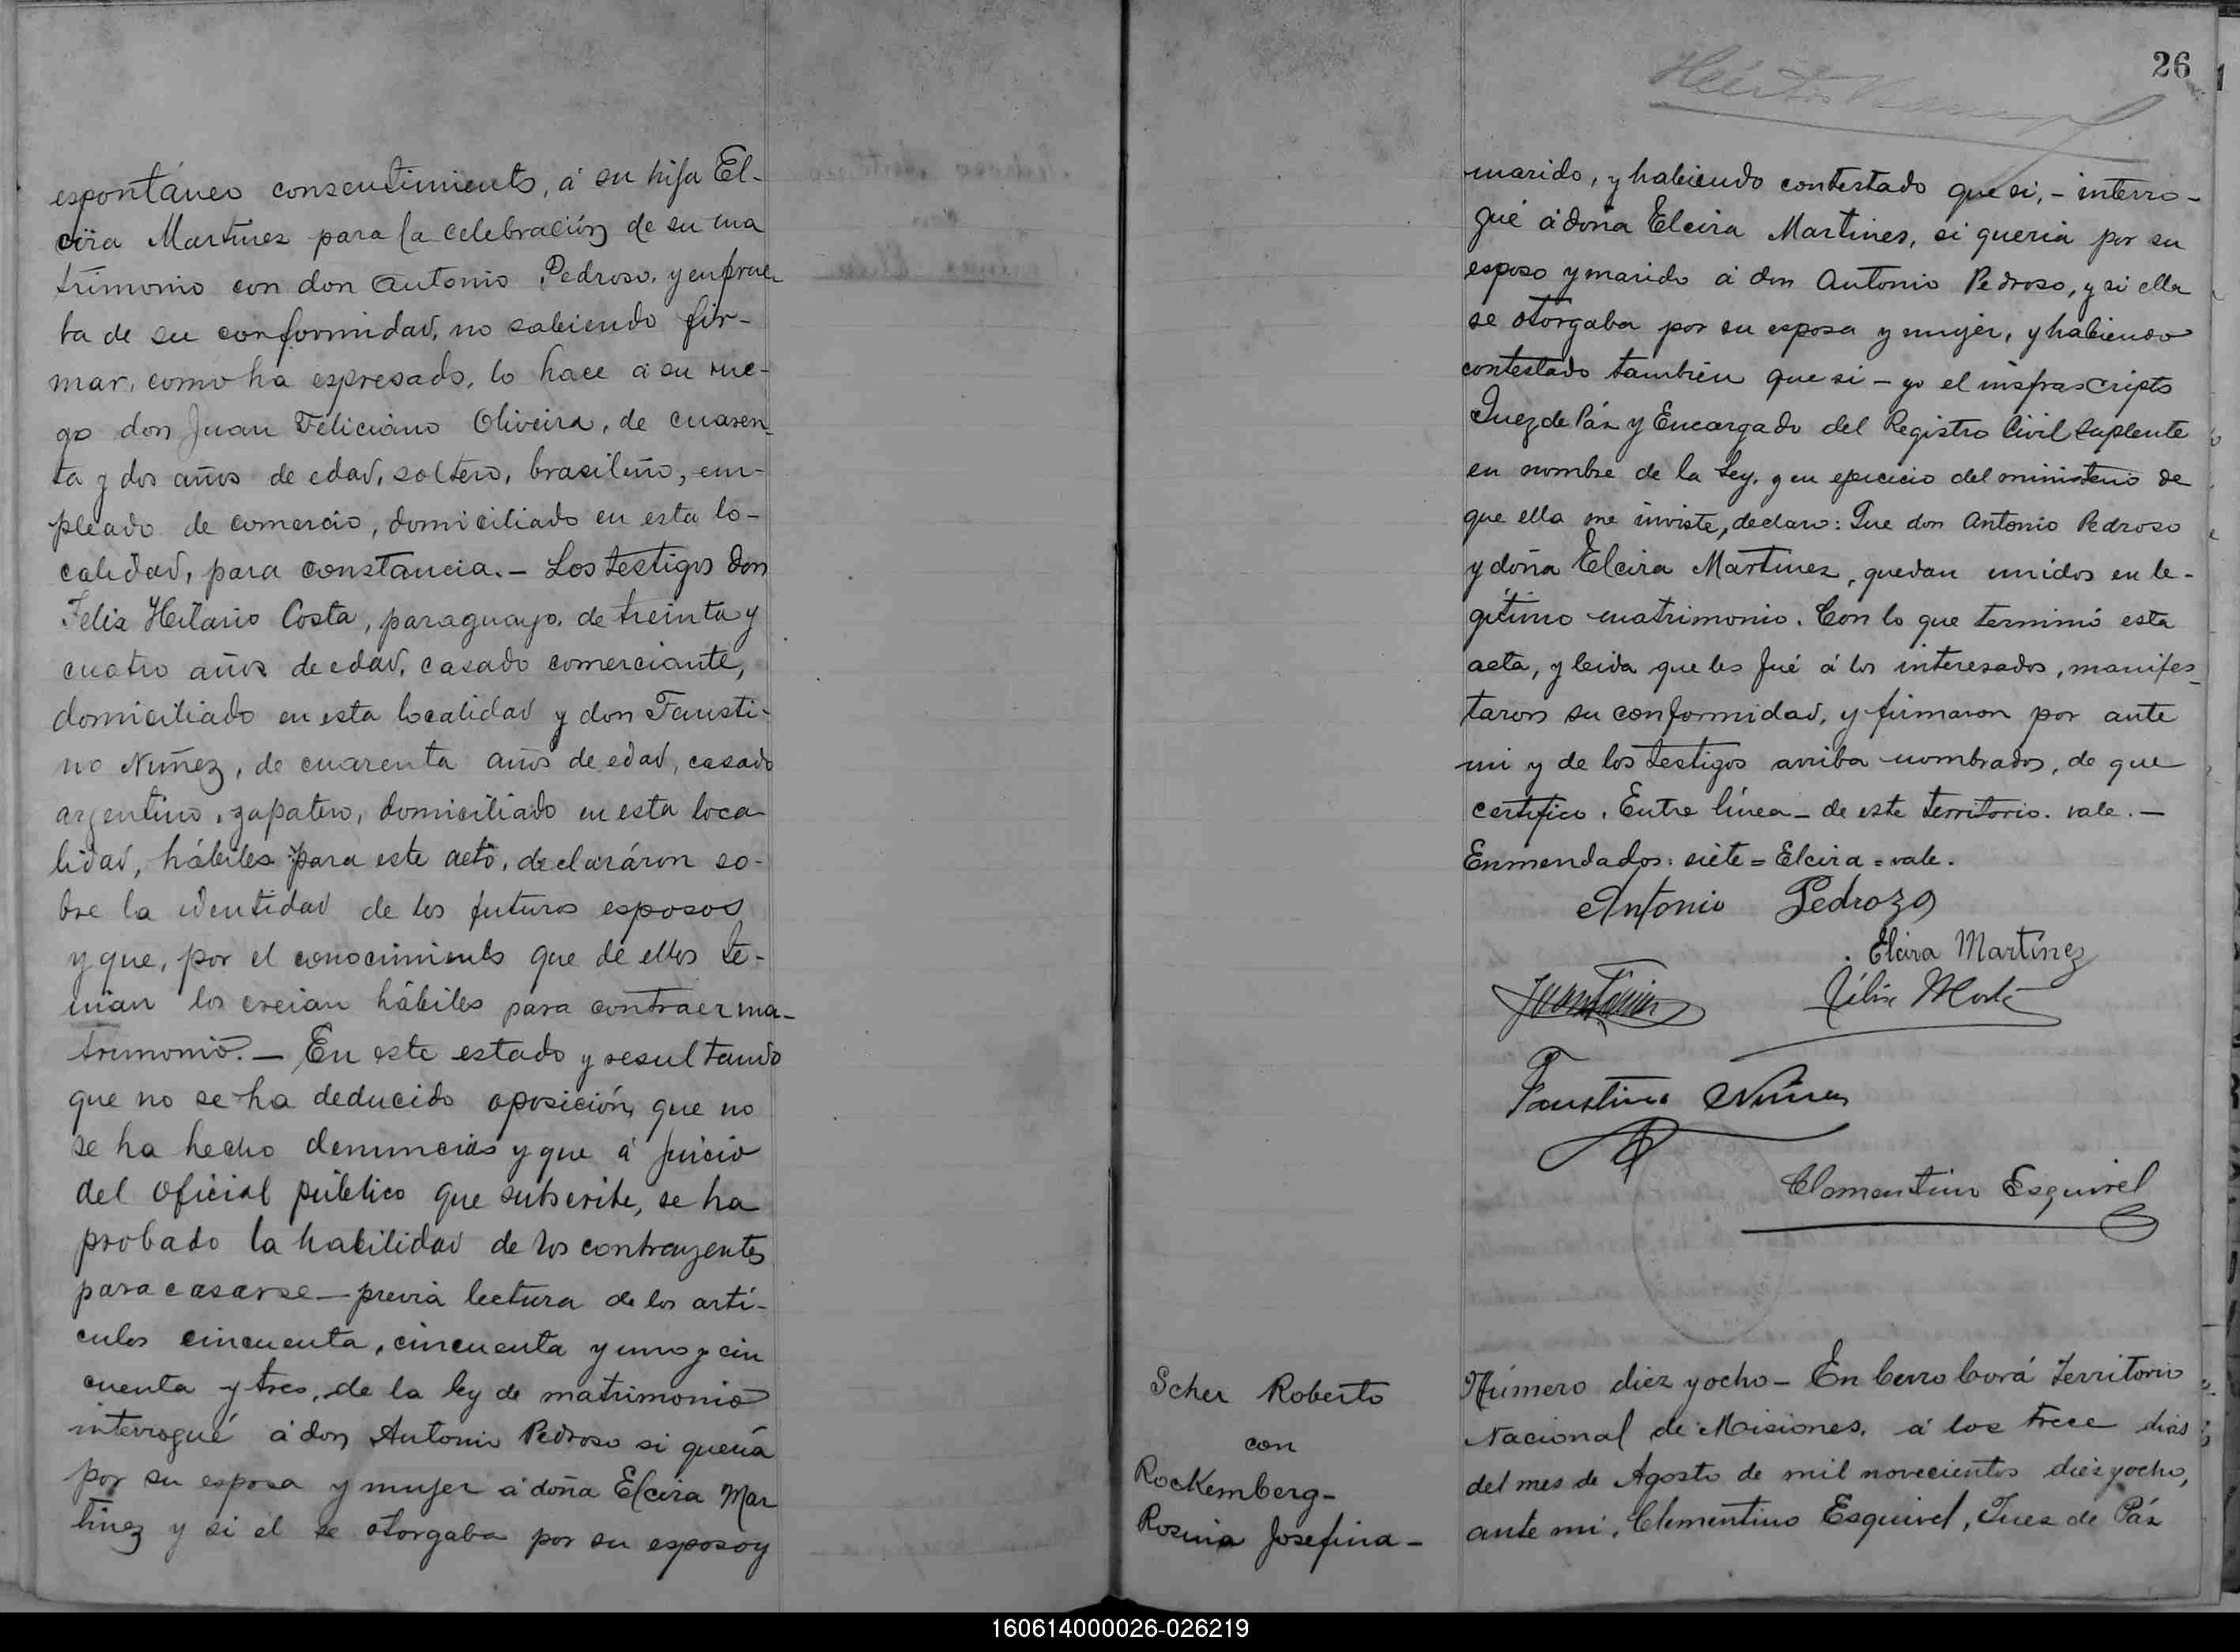 espontáneo consentimiento, á su hija El-
cira Martinez para la celebración de su ma
trimonio con don Antonio Pedroso, y en prue
ba de su conformidad, no sabiendo fir-
mar, como ha espresado, lo hace á su rue-
go don Juan Feliciano Oliveira, de cuaren-
ta y dos años de edad, soltero, brasileño, em-
pleado de comercio, domiciliado en esta lo-
calidad, para constancia. - Los testigos don
Felix Hilario Costa, paraguayo, de treinta y
cuatro años de edad, casado comerciante,
domiciliado en esta localidad y don Fausti-
no Nuñez, de cuarenta años de edad, casado
argentino, zapatero, domiciliado en esta loca
lidad, hábiles para este acto, declaráron so-
bre la identidad de los futuros esposos
y que, por el conocimiento que de ellos te-
nian los creian hábiles para contraer ma-
trimonio. - En este estado y resultando
que no se ha deducido oposición, que no
se ha hecho denuncias y que á juicio
del oficial público que subscribe, se ha
probado la habilidad de los contrayentes
para casarse - previa lectura de los artí-
culos cincuenta, cincuenta y uno y cin
cuenta y tres, de la ley de matrimonio
interrogué á don Antonio Pedroso si quería
por su esposa y mujer á doña Elcira Mar
tinez y si el se otorgaba por su esposo y
26
marido, y habiendo contestado que si, - interro-
gué á doña Elcira Martines, si queria por su
esposo y marido á don Antonio Pedroso, y si ella
se otorgaba por su esposa y mujer, y habiendo
contestado tambien que si - yo el infrascripto
Juez de Páz y Encargado del Registro Civil Suplente
en nombre de la Ley, y en ejercicio del ministerio de
que ella me inviste, declaro: Que don Antonio Pedroso
y doña Elcira Martinez, quedan unidos en le-
gitimo matrimonio. Con lo que terminó esta
acta, y leida que les fué á los interesados, manifes-
taron su conformidad, y firmaron por ante
mi y de los testigos arriba nombrados, de que
certifico. Entre línea - de este territorio. vale. -
Enmendados: siete = Elcira = vale.
Antonio Pedrozo
Elcira Martínez
Félix
Faustino Núnez
Clementino Esquivel
Scher Roberto
con
Rockemberg-
Rosina Josefina -
Número diez y ocho - En Cerro Corá Territorio
Nacional de Misiones, á los trece dias
del mes de Agosto de mil novecientos diez y ocho,
ante mi, Clementino Esquivel, Juez de Páz
160614000026-026219